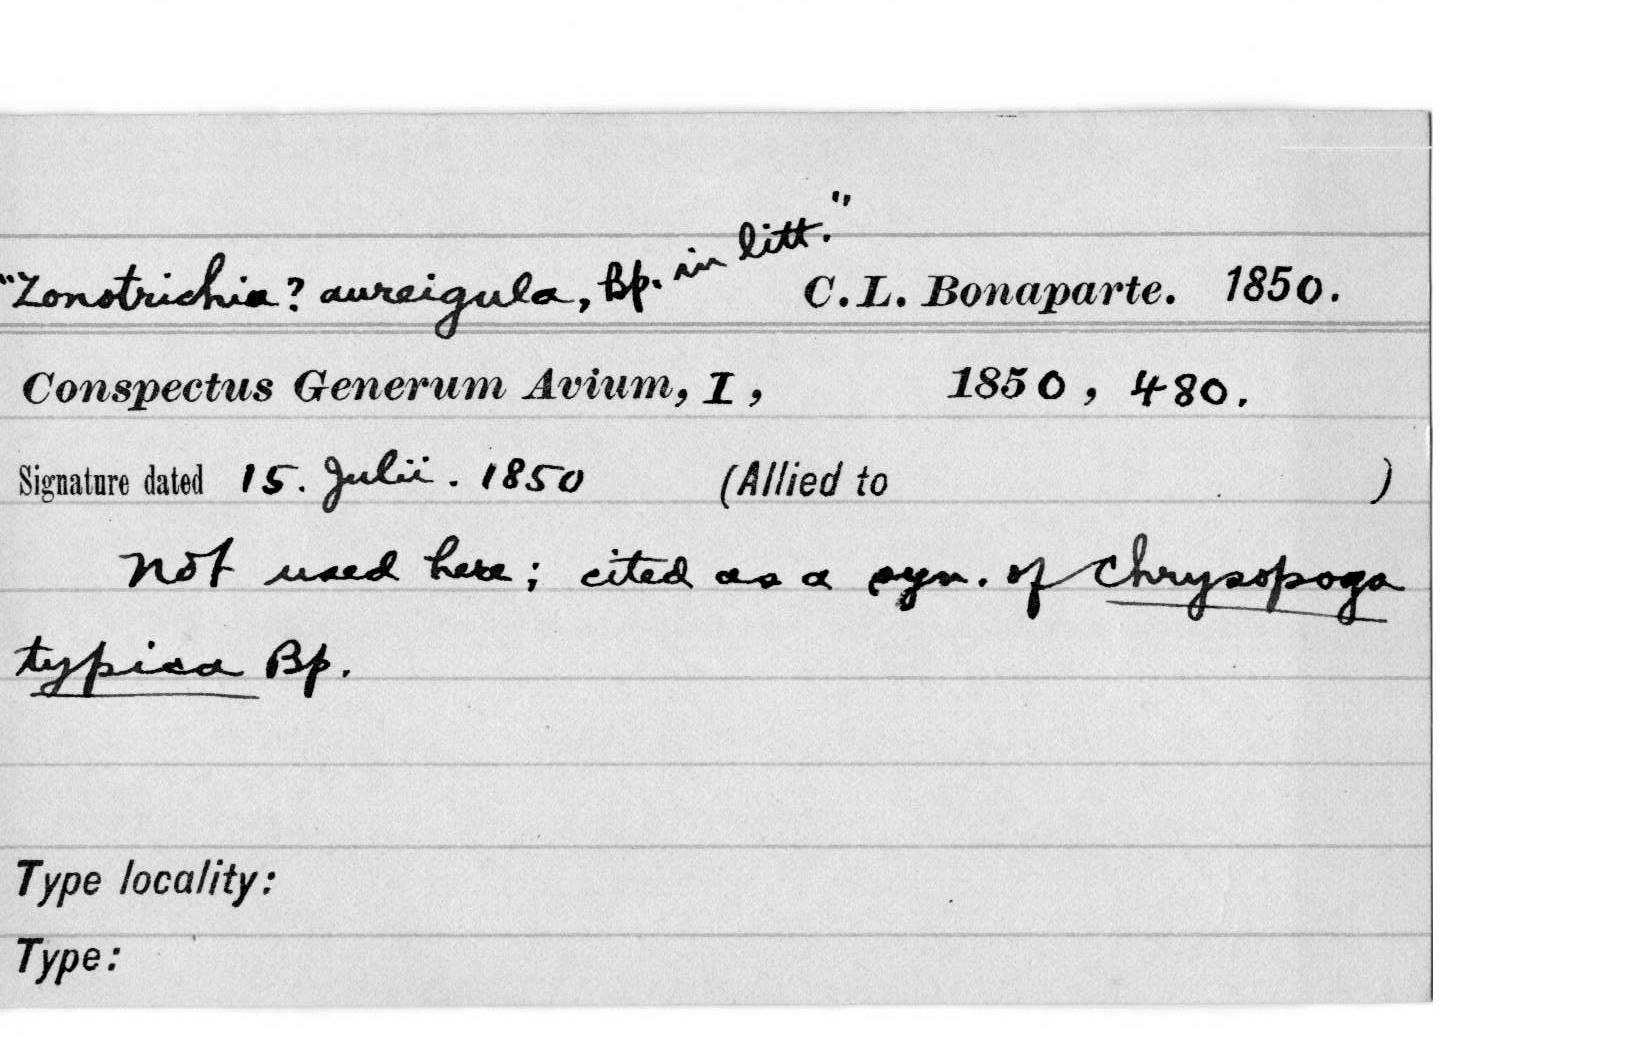 "Zonotrichia? aureigula, Bp. in litt." C. L. Bonaparte. 1850.
Conspectus Generum Avium, I, 1850, 480.
Signature dated 15. Julii. 1850 (Allied to )
Not used here; cited as a syn. of Chrysopoga
typica Bp.
Type locality:
Type: